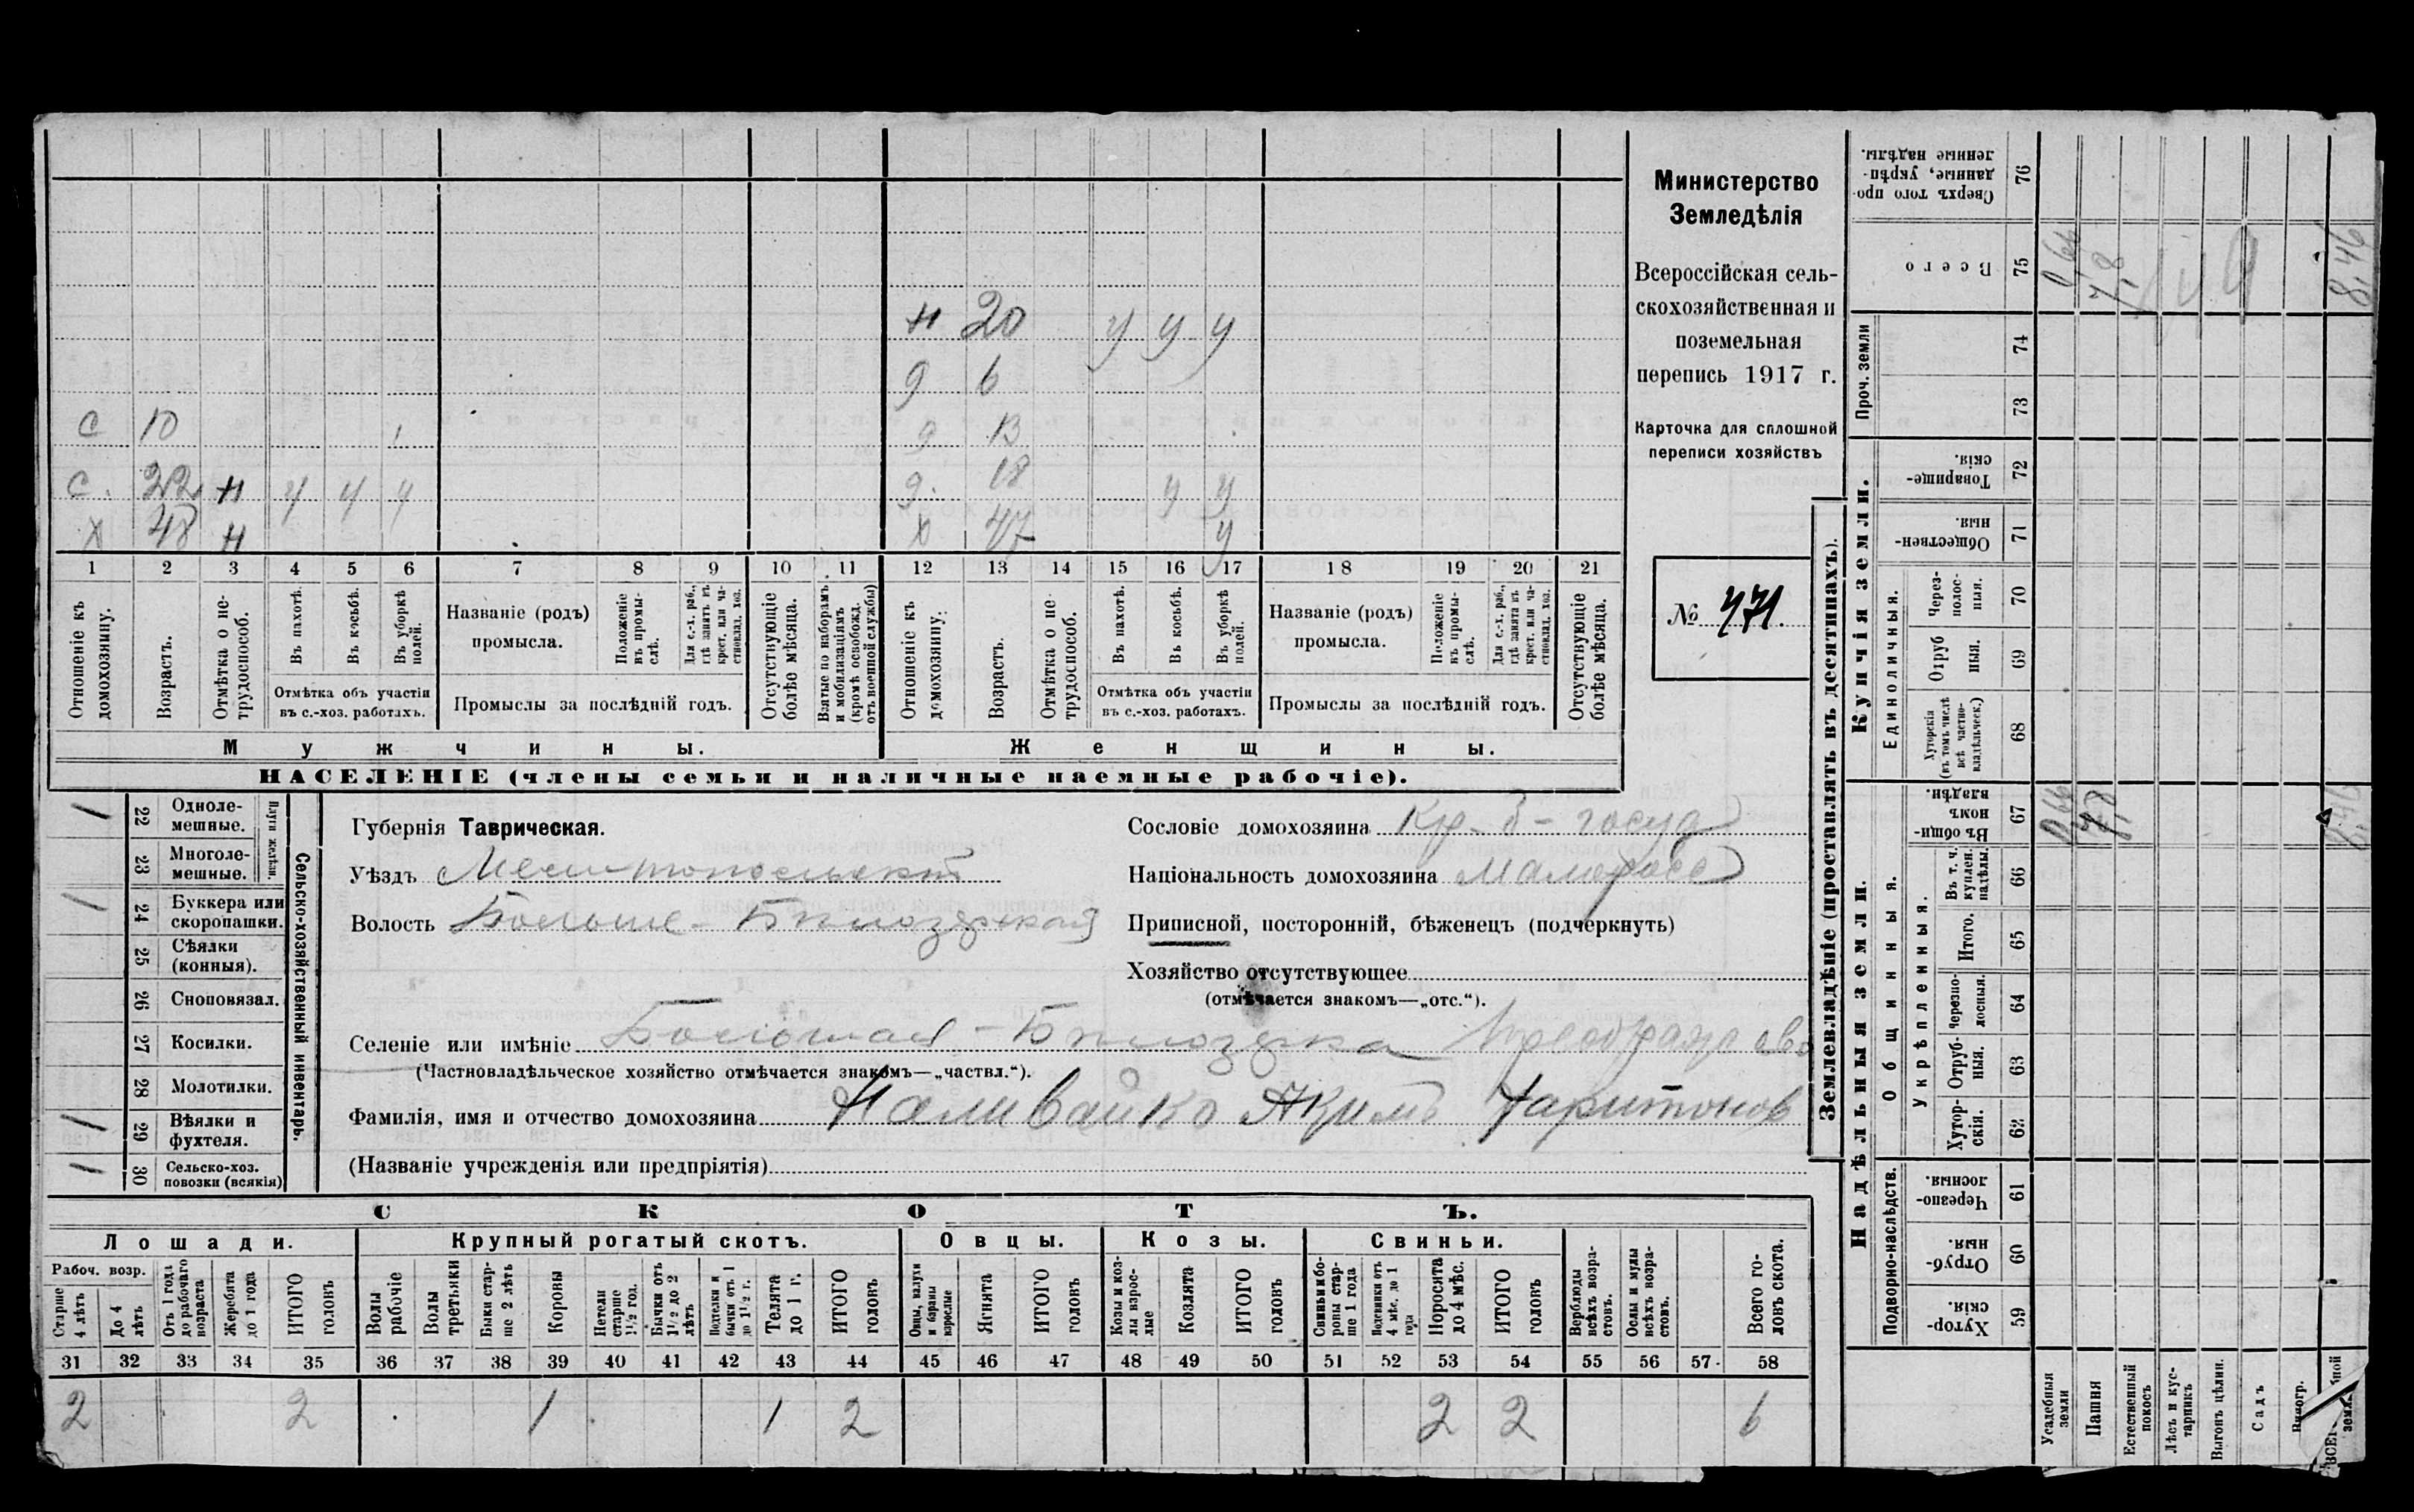 н 20 у у у
д 6
с 10 д 13
с. 22 н у у у д. 18 у у
х 48 н х 47 у
1 2 3 4 5 6 7 8 9 10 11 12 13 14 15 16 17 18 19 20 21
Отношеніе къ домохозяину.
Возрастъ.
Отмѣтка о не-
трудоспособ.
Въ пахотѣ.
Въ косьбѣ.
Въ уборкѣ
полей.
Отмѣтка объ участіи
въ с.-хоз. работахъ.
Названіе (родъ)
промысла.
Положеніе
въ промы-
слѣ.
Для с.-х. раб.,
гдѣ занятъ въ
крест. или ча-
стновлад. хоз.
Промыслы за послѣдній годъ.
Отсутствующіе
болѣе мѣсяца.
Взятые по наборамъ
и мобилизаціямъ
(кромѣ освобожд.
отъ военной службы)
Отношеніе къ
домохозяину.
Возрастъ.
Отмѣтка о не-
трудоспособ.
Въ пахотѣ.
Въ косьбѣ.
Въ уборкѣ
полей.
Отмѣтка объ участіи
въ с.-хоз. работахъ.
Названіе (родъ)
промысла.
Положеніе
въ промы-
слѣ.
Для с.-х. раб.,
гдѣ занята въ
крест. или ча-
стновлад. хоз.
Промыслы за послѣдній годъ.
Отсутствующіе
болѣе мѣсяца.
Мужчины.
Женщины.
НАСЕЛЕНІЕ (члены семьи и наличные наемные рабочіе).
Министерство
Земледѣлія
Всероссійская сель-
скохозяйственная и
поземельная
перепись 1917 г.
Карточка для сплошной
переписи хозяйствъ
№ 471.
1 22 Одноле-
мешные.
23 Многоле-
мешные.
Плуги желѣзн.
1 24 Буккера или
скоропашки.
25 Сѣялки
(конныя).
26 Сноповязал.
27 Косилки.
28 Молотилки.
1 29 Вѣялки и
фухтеля.
1 30 Сельско-хоз.
повозки (всякія)
Сельско-хозяйственный инвентарь.
Губернія Таврическая.
Уѣздъ Мелитопольскій
Волость Больше-Бѣлозерская
Сословіе домохозяина Кр. б-госуд
Національность домохозяина Малоросс
Приписной, посторонній, бѣженец (подчеркнуть)
Хозяйство отсутствующее
(отмѣчается знакомъ—„отс.“).
Селеніе или имѣніе Большая-Бѣлозерка
(Частновладѣльческое хозяйство отмѣчается знакомъ—„частвл.“).
Фамилія, имя и отчество домохозяина Наливайко Якимъ Харитонов
(Названіе учрежденія или предпріятія)
СКОТЪ.
Лошади.
Крупный рогатый скотъ.
Овцы.
Козы.
Свиньи.
Рабоч. возр.
Старше
4 лѣтъ
До 4
лѣтъ
Отъ 1 года
до рабочаго
возраста
Жеребята
до 1 года
ИТОГО
головъ
Волы
рабочіе
Волы
третьяки
Быки стар-
ше 2 лѣтъ
Коровы
Нетели
старше
1½ год.
Бычки отъ
1½ до 2
лѣтъ
Подтелки и
бычки отъ 1
до 1½ г.
Телята
до 1 г.
ИТОГО
головъ
Овцы, валухи
и бараны
взрослые
Ягнята
ИТОГО
головъ
Козы и коз-
лы взрос-
лые
Козлята
ИТОГО
головъ
Свиньи и бо-
ровы стар-
ше 1 года
Подсвинки отъ
4 мѣс. до 1
года
Поросята
до 4 мѣс.
ИТОГО
головъ
Верблюды
всѣхъ возра-
стовъ.
Ослы и мулы
всѣхъ возра-
стовъ.
Всего го-
ловъ скота.
31 32 33 34 35 36 37 38 39 40 41 42 43 44 45 46 47 48 49 50 51 52 53 54 55 56 57 58
2 2 1 1 2 2 2 6
Землевладѣніе (проставлять въ десятинахъ).
Купчія земли.
Надѣльныя земли.
Сверхъ того про-
данные, укрѣп-
ленные надѣлы.
76
Всего
75
0,66
7,8
8,46
Проч. земли
74
73
Товарище-
скія.
72
Обществен-
ныя.
71
Единоличныя.
Через-
полос-
ныя.
70
Отруб
ныя.
69
Хуторскія
(въ томъ числѣ
всѣ частно-
владѣльческ.)
68
Общинныя.
Въ общин-
номъ
владѣн.
67
0,66
7,8
8,46
Укрѣпленныя.
Въ т. ч.
куплен.
надѣлы.
66
Итого.
65
Черезпо-
лосныя.
64
Отруб-
ныя.
63
Хутор-
скія.
62
Подворно-наслѣдств.
Черезпо-
лосныя.
61
Отруб-
ныя.
60
Хутор-
скія.
59
Усадебныя
земли
Пашня
Естественный
покосъ
Лѣсъ и кус-
тарникъ
Выгонъ цѣлин.
Садъ